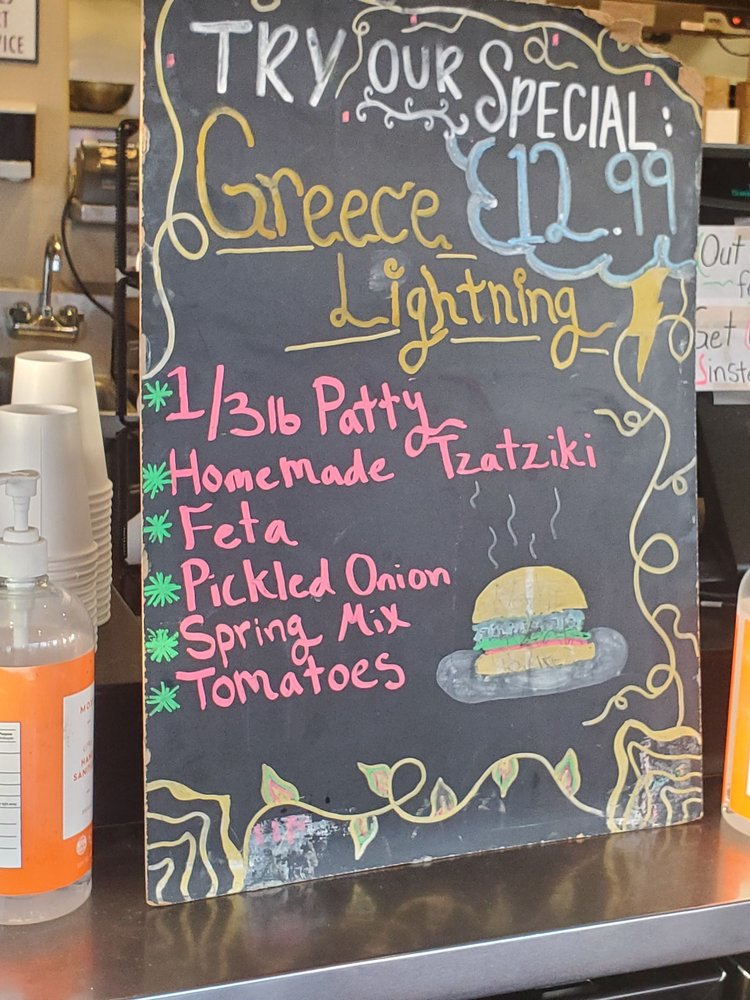 TRY OUR SPECIAL:
Greece
12.99
Lightning
1/3lb Patty
Homemade Tzatziki
Feta
Pickled Onion
Spring Mix
Tomatoes
Out
Get